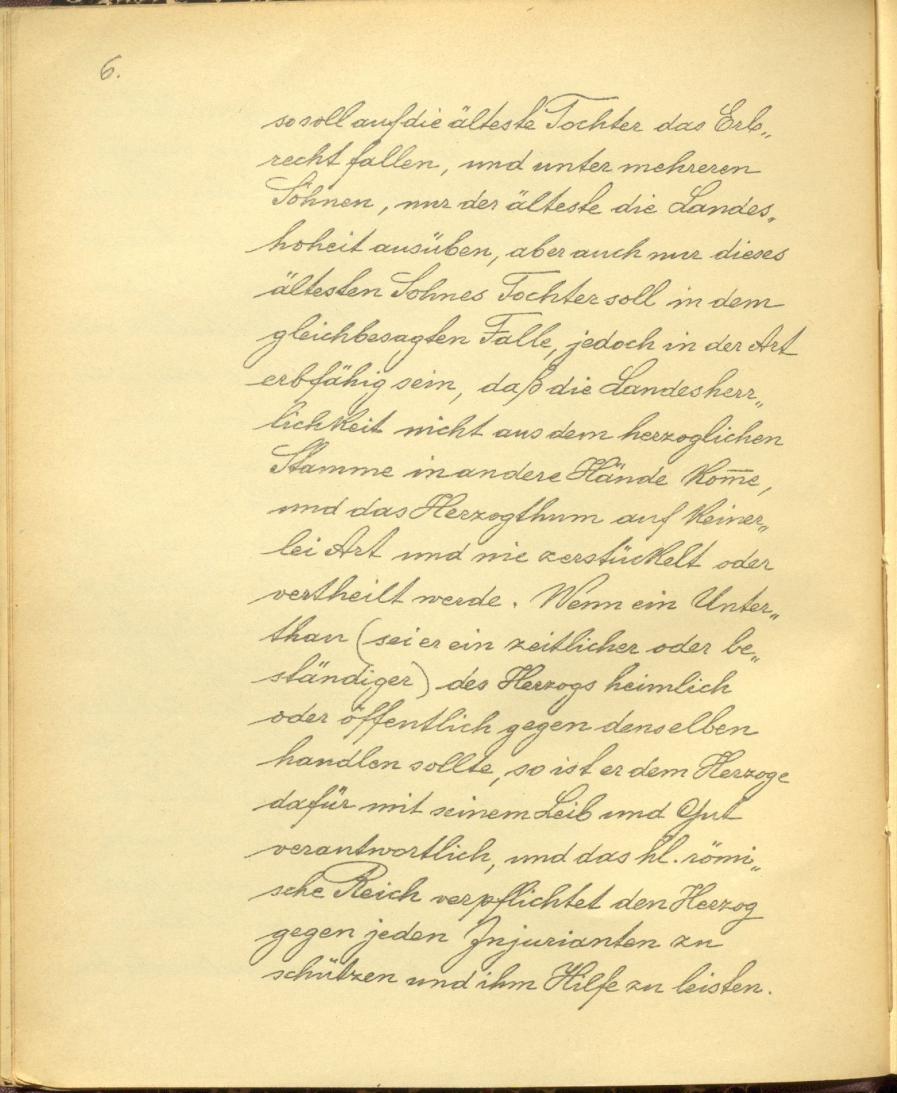 6.
so soll auf die älteste Tochter das Erb„
recht fallen, und unter mehreren
Söhnen, nur der älteste die Landes„
hoheit ausüben, aber auch nur dieses
ältesten Sohnes Tochter soll in dem
gleichbesagten Falle, jedoch in der Art
erbfähig sein, daß die Landesherr„
lichkeit nicht aus dem herzoglichen
Stamme in andere Hände kom̅e,
und das Herzogthum auf keiner„
lei Art und nie zerstückelt oder
vertheilt werde. Wenn ein Unter„
than (sei er ein zeitlicher oder be„
ständiger) des Herzogs heimlich
oder öffentlich gegen denselben
handlen sollte, so ist er dem Herzoge
dafür mit seinem Leib und Gut
verantwortlich, und das hl. römi„
sche Reich verpflichtet den Herzog
gegen jeden Injurianten zu
schützen und ihm Hilfe zu leisten.